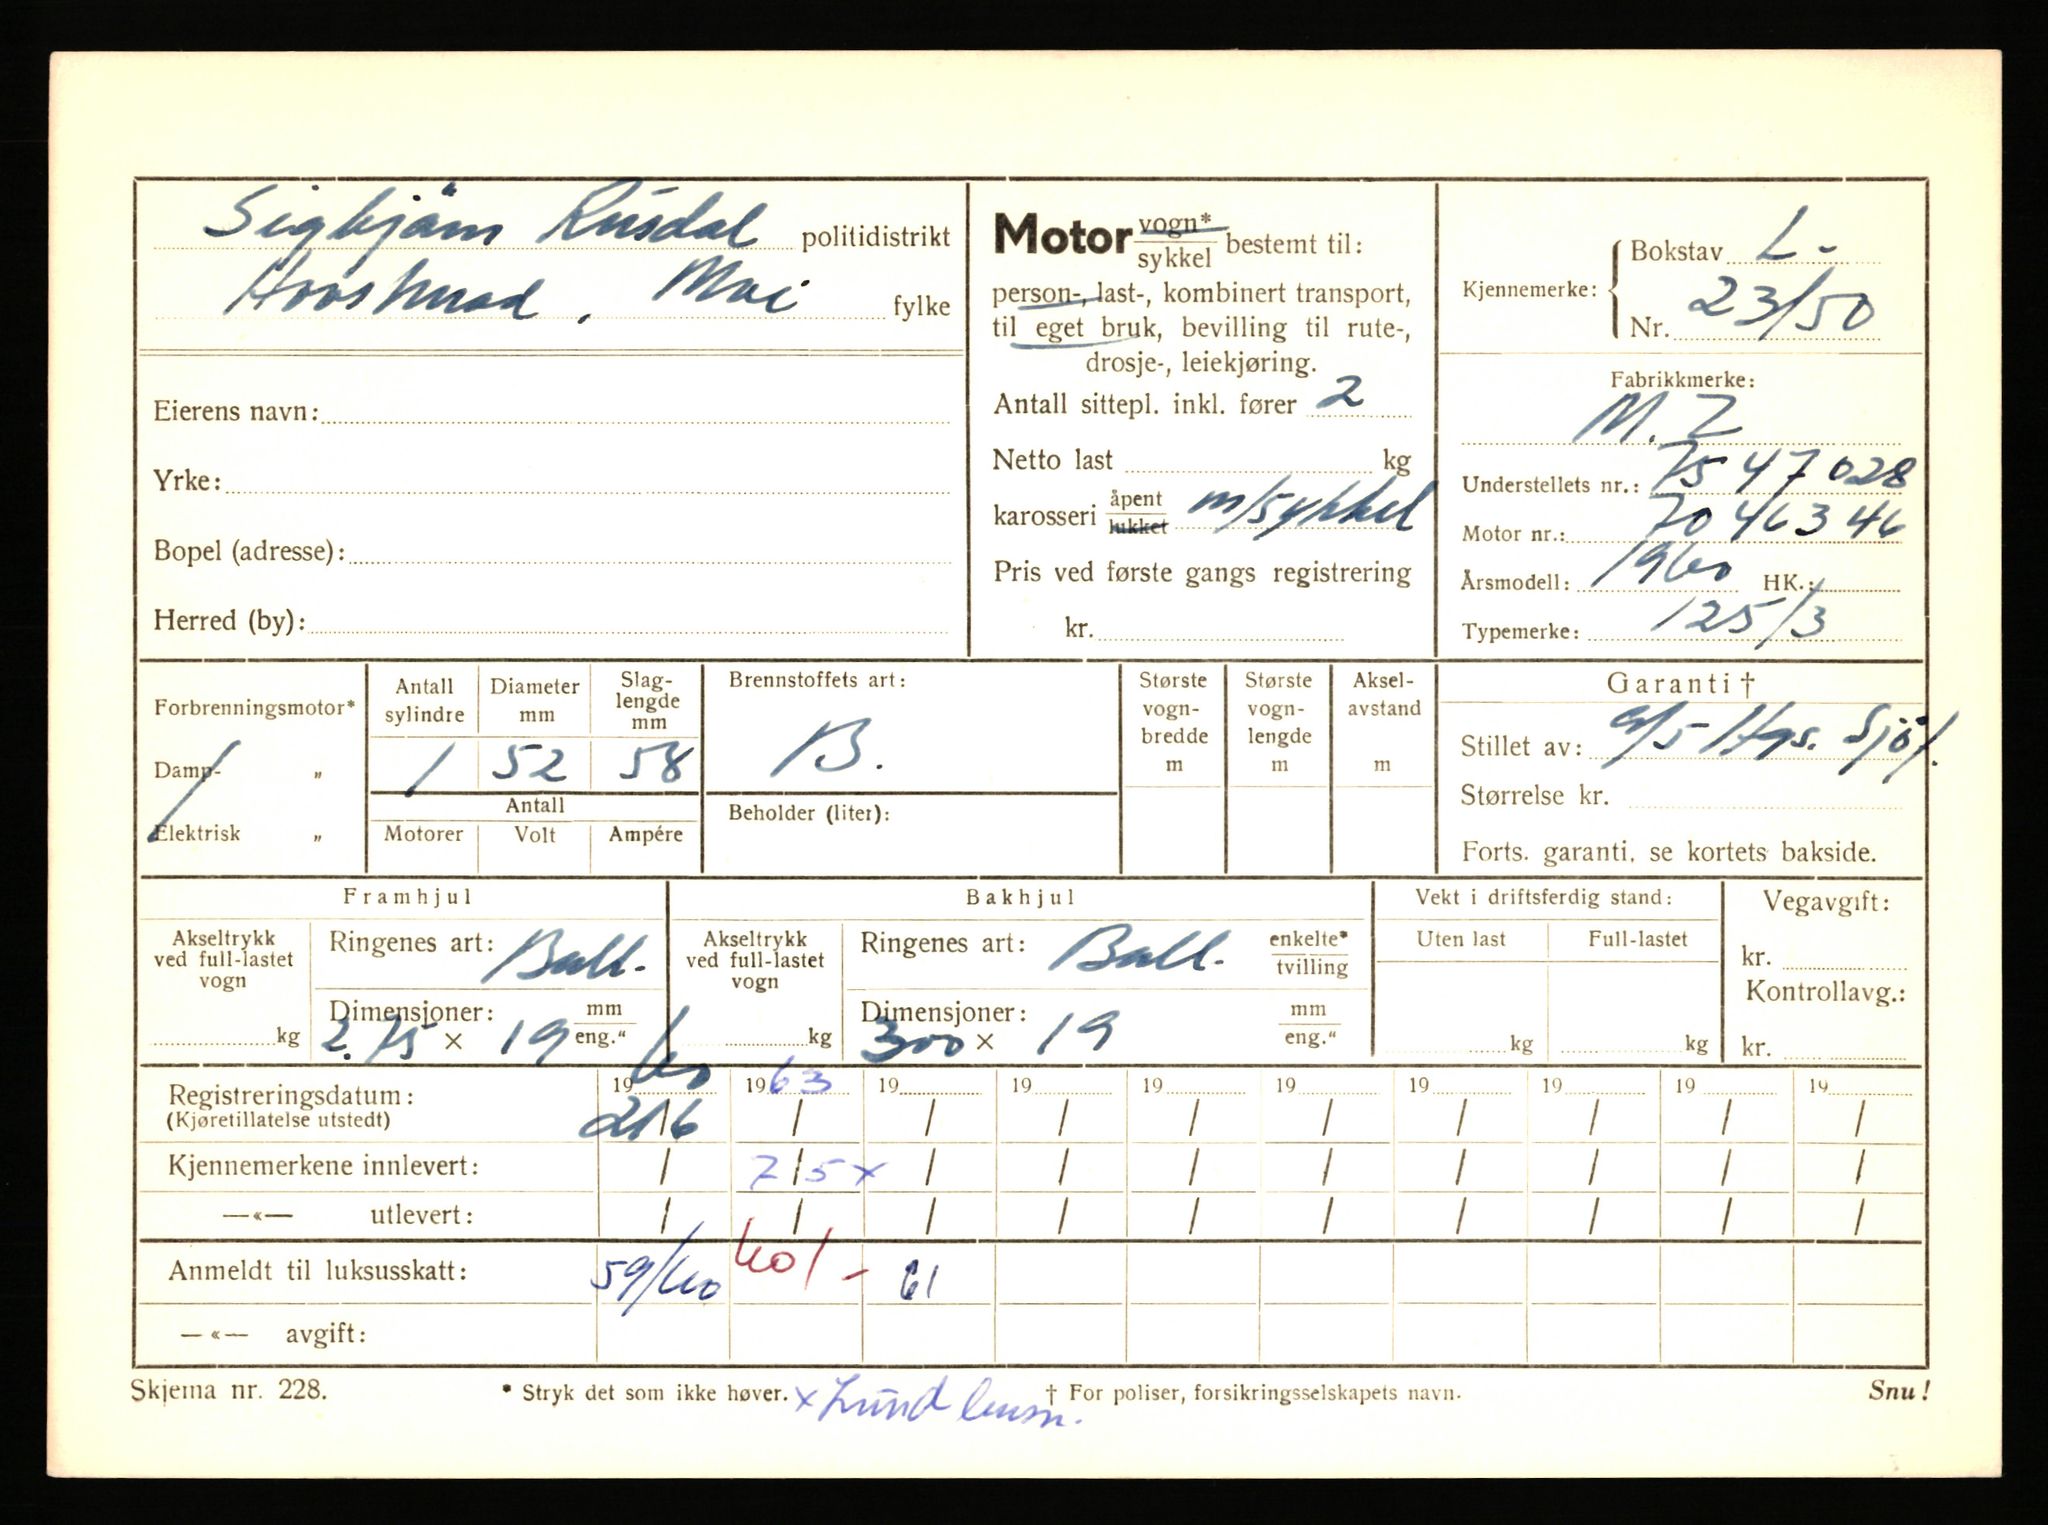 Sigbjörn Rusdal politidistrikt
Moi fylke
Eierens navn:
Yrke:
Bopel (adresse):
Herred (by):
Motor vogn* / sykkel bestemt til:
person-, last-, kombinert transport,
til eget bruk, bevilling til rute-,
drosje-, leiekjøring.
Antall sittepl. inkl. fører 2
Netto last kg
karosseri åpent / lukket m/sykkel
Pris ved første gangs registrering
kr.
Kjennemerke: Bokstav L-
Nr. 23150
Fabrikkmerke:
M.Z
Understellets nr.: 7547028
Motor nr.: 7046346
Årsmodell: 1960 HK.:
Typemerke: 125/3
Forbrenningsmotor*
Damp- „
Elektrisk „
Antall sylindre 1
Diameter mm 52
Slaglengde mm 58
Antall
Motorer Volt Ampére
Brennstoffets art:
B.
Beholder (liter):
Største vogn-bredde m
Største vogn-lengde m
Aksel-avstand m
Garanti †
Stillet av: a/s Hgs. Sjöf.
Størrelse kr.
Forts. garanti, se kortets bakside.
Framhjul
Akseltrykk ved full-lastet vogn kg
Ringenes art: Ball.
Dimensjoner: 2.75 x 19 mm / eng.“
Bakhjul
Akseltrykk ved full-lastet vogn kg
Ringenes art: Ball. enkelte* / tvilling
Dimensjoner: 300 x 19 mm / eng.“
Vekt i driftsferdig stand:
Uten last Full-lastet
kg kg
Vegavgift:
kr.
Kontrollavg.:
kr.
Registreringsdatum: 1960 1963 19 19 19 19 19 19 19 19
(Kjøretillatelse utstedt) 21/6 / / / / / / / / /
Kjennemerkene innlevert: / 7/5 x / / / / / / / /
—«— utlevert: / / / / / / / / / /
Anmeldt til luksusskatt: 59/60 60/- 61
—«— avgift:
Skjema nr. 228. * Stryk det som ikke høver. † For poliser, forsikringsselskapets navn. Snu!
x Lund lensm.